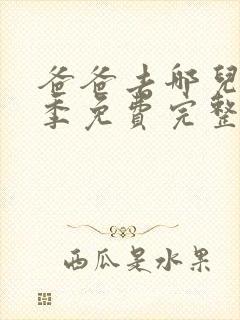 爸爸去哪兒
季免費完整
西瓜是水果